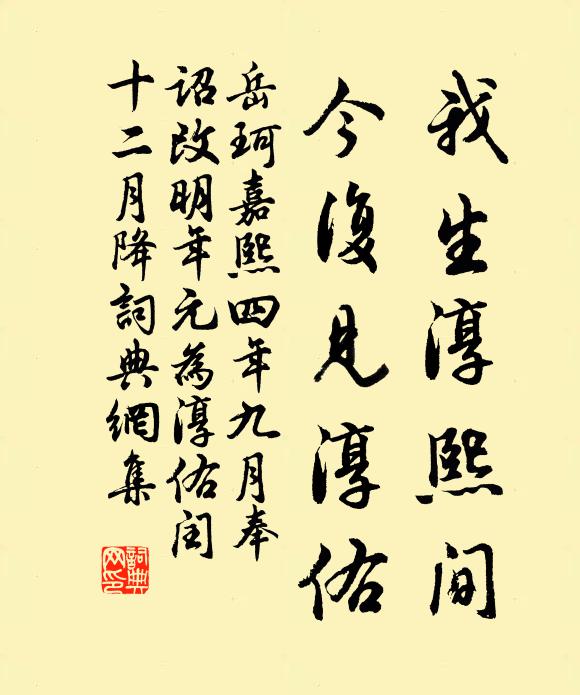 我生淳熙间
今復見淳佑
岳珂嘉熙四年九月奉
詔改明年元為淳佑闰
十二月降詞典網集
詞典网印